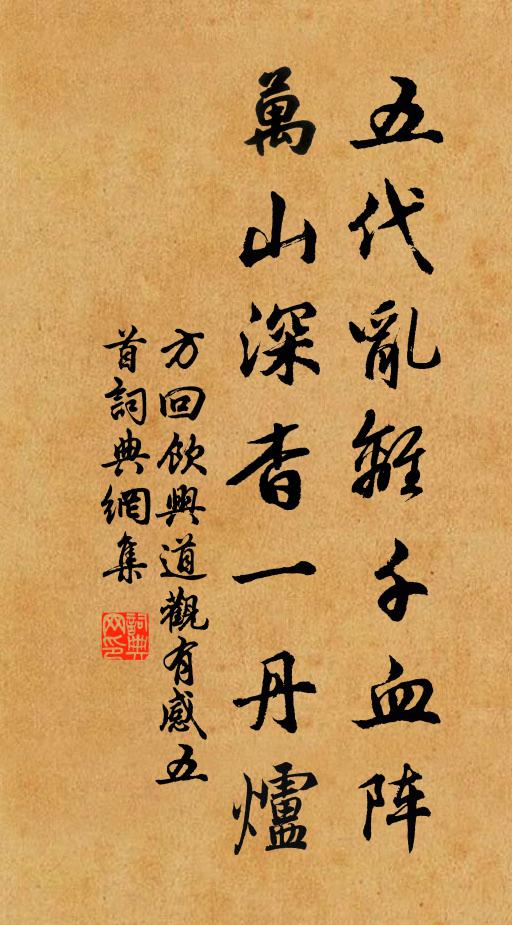 五代亂離千血阵
萬山深杳一丹爐
方回飲興道觀有感五
首詞典網集
詞典网印